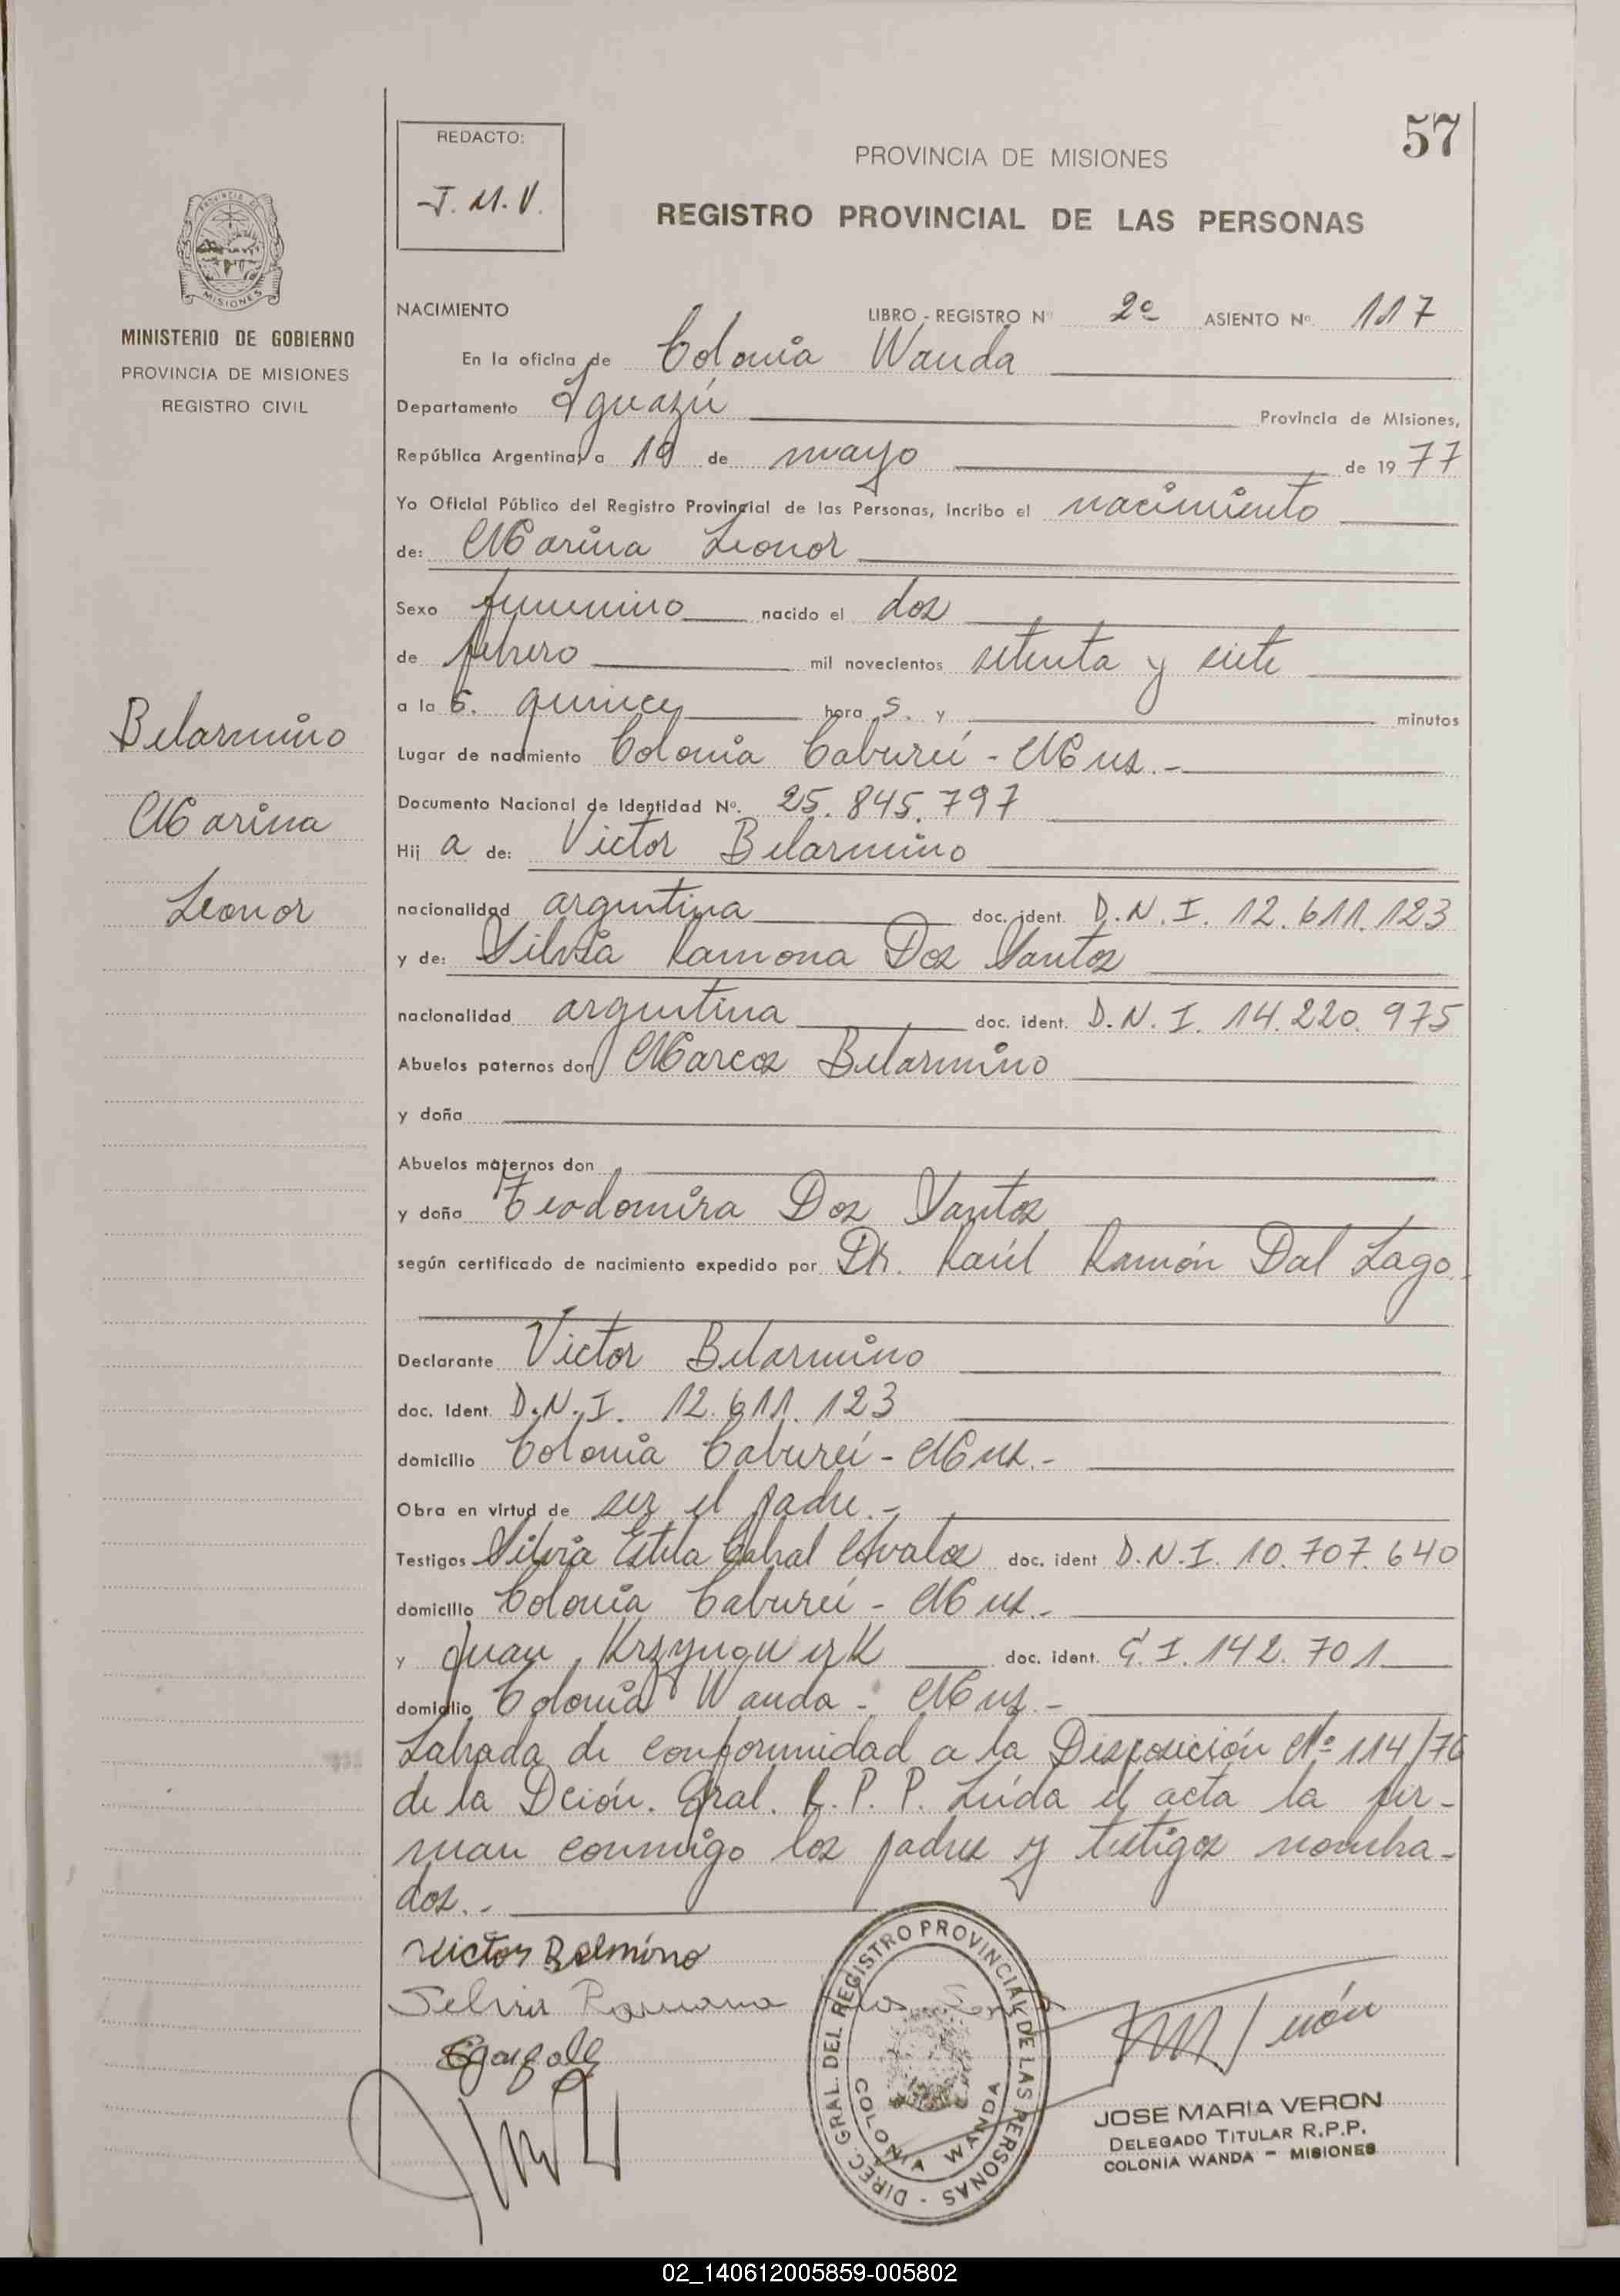 57
REDACTO:
J. M. V.
PROVINCIA DE MISIONES
REGISTRO PROVINCIAL DE LAS PERSONAS
MISIONES
MINISTERIO DE GOBIERNO
PROVINCIA DE MISIONES
REGISTRO CIVIL
Belarmino
Marina
Leonor
NACIMIENTO LIBRO - REGISTRO Nº 2º ASIENTO Nº 117
En la oficina de Colonia Wanda
Departamento Iguazú Provincia de Misiones,
República Argentina, a 19 de mayo de 1977
Yo Oficial Público del Registro Provincial de las Personas, incribo el nacimiento
de: Marina Leonor
Sexo femenino nacido el dos
de febrero mil novecientos setenta y siete
a la s. quince hora s. y minutos
Lugar de nacimiento Colonia Cabureí - Mns.-
Documento Nacional de Identidad Nº. 25.845.797
Hij a de: Victor Belarmino
nacionalidad argentina doc. ident. D.N.I. 12.611.123
y de: Silvia Ramona Dos Santos
nacionalidad argentina doc. ident. D.N.I. 14.220.975
Abuelos paternos don Marcos Belarmino
y doña
Abuelos maternos don
y doña Teodomira Dos Santos
según certificado de nacimiento expedido por Dr. Raúl Ramón Dal Lago.
Declarante Victor Belarmino
doc. Ident. D.N.I. 12.611.123
domicilio Colonia Cabureí - Mns.-
Obra en virtud de ser el padre.-
Testigos Silvia Estela Cabral Avalos doc. ident D.N.I. 10.707.640
domicilio Colonia Cabureí - Mns.-
y Juan doc. ident. C.I. 142.701
domicilio Colonia Wanda - Mns.-
Labrada de conformidad a la Disposición Nº 114/76
de la Dción. Gral. R. P. P. Leída el acta la fir-
man conmigo los padres y testigos nombra-
dos.-
Victor Belmino
Selvia Ramona Dos
DIREC. GRAL. DEL REGISTRO PROVINCIAL DE LAS PERSONAS -
COLONIA WANDA
JOSE MARIA VERON
DELEGADO TITULAR R.P.P.
COLONIA WANDA - MISIONES
02_140612005859-005802